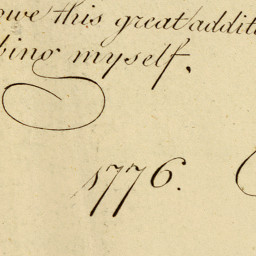 owe this great addit
bing myself.
1776.